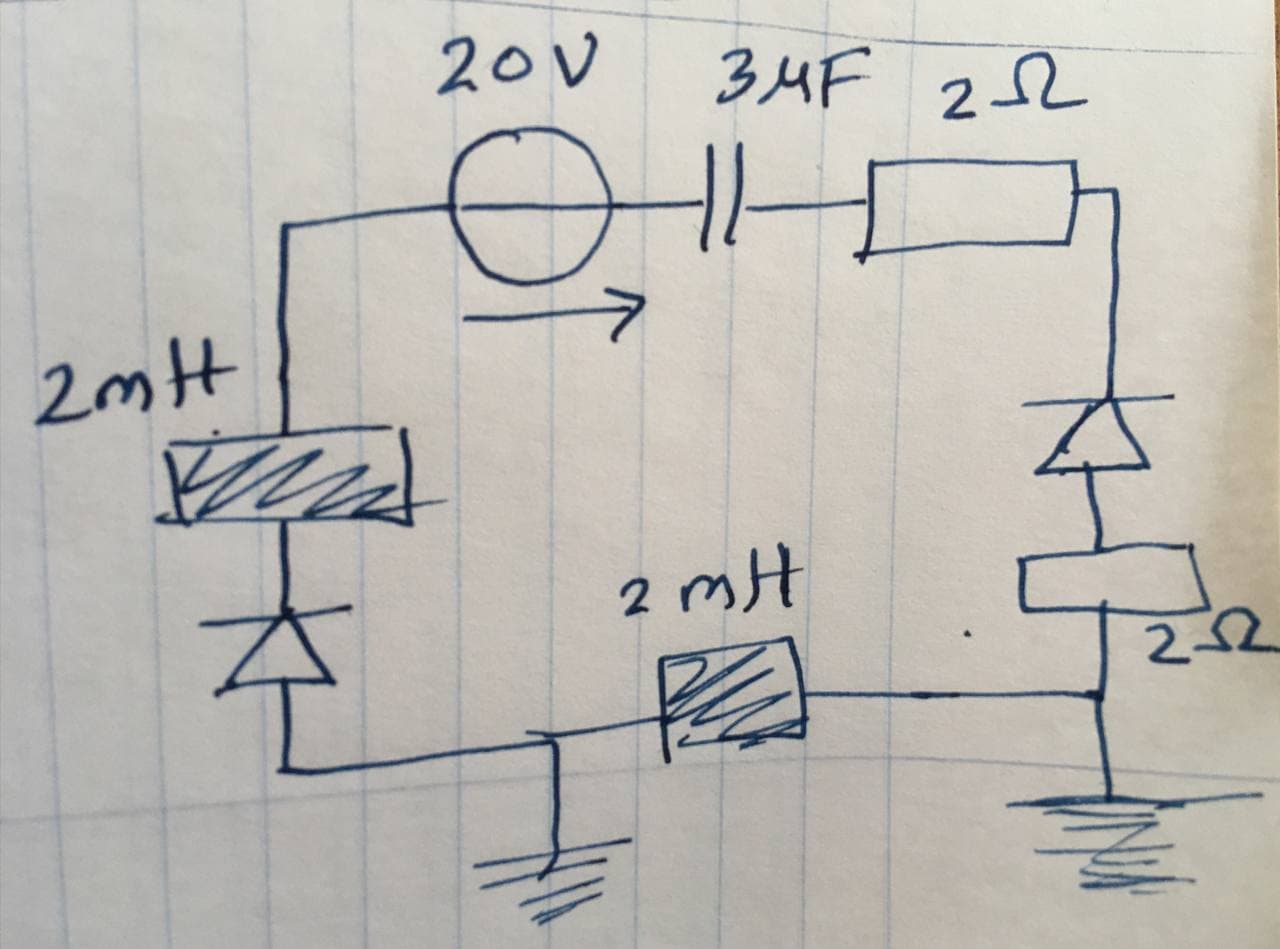 20V
3μF
2Ω
2mH
2mH
2Ω